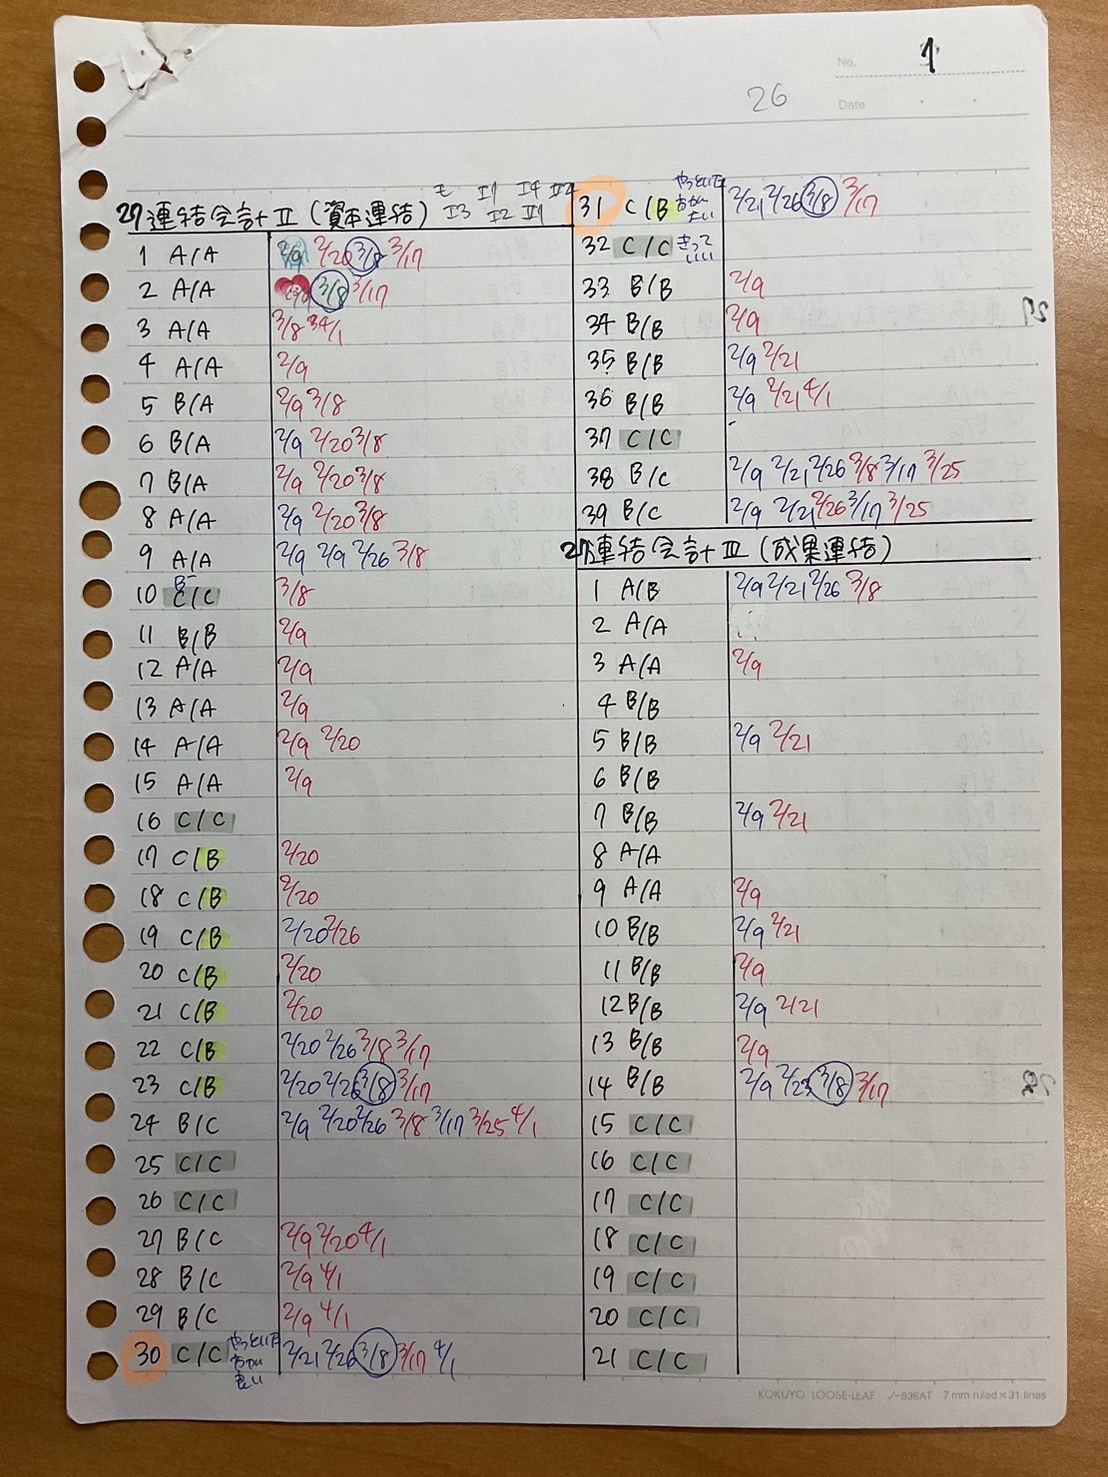 No. 1
26
Date
27 連結会計Ⅱ(資本連結)
1 A/A 2/9 2/20 3/8 3/17
2 A/A 3/8 3/17
3 A/A 3/8 4/1
4 A/A 2/9
5 B/A 2/9 3/8
6 B/A 2/9 2/20 3/8
7 B/A 2/9 2/20 3/8
8 A/A 2/9 2/20 3/8
9 A/A 2/9 2/9 2/26 3/8
10 C/C 3/8
11 B/B 2/9
12 A/A 2/9
13 A/A 2/9
14 A/A 2/9 2/20
15 A/A 2/9
16 C/C
17 C/B 2/20
18 C/B 2/20
19 C/B 2/20 2/26
20 C/B 2/20
21 C/B 2/20
22 C/B 2/20 2/26 3/8 3/17
23 C/B 2/20 2/26 3/8 3/17
24 B/C 2/9 2/20 2/26 3/8 3/17 3/25 4/1
25 C/C
26 C/C
27 B/C 2/9 2/20 4/1
28 B/C 2/9 4/1
29 B/C 2/9 4/1
30 C/C 2/21 2/26 3/8 3/17 4/1
31 C/B 2/21 2/26 3/8 3/17
32 C/C きって
いい
33 B/B 2/9
34 B/B 2/9
35 B/B 2/9 2/21
36 B/B 2/9 2/21 4/1
37 C/C
38 B/C 2/9 2/21 2/26 3/8 3/17 3/25
39 B/C 2/9 2/21 2/26 3/17 3/25
27 連結会計Ⅲ(成果連結)
1 A/B 2/9 2/21 2/26 3/8
2 A/A
3 A/A 2/9
4 B/B
5 B/B 2/9 2/21
6 B/B
7 B/B 2/9 2/21
8 A/A
9 A/A 2/9
10 B/B 2/9 2/21
11 B/B 2/9
12 B/B 2/9 2/21
13 B/B 2/9
14 B/B 2/9 2/23 3/8 3/17
15 C/C
16 C/C
17 C/C
18 C/C
19 C/C
20 C/C
21 C/C
KOKUYO LOOSE-LEAF ノ-836AT 7 mm ruled×31 lines